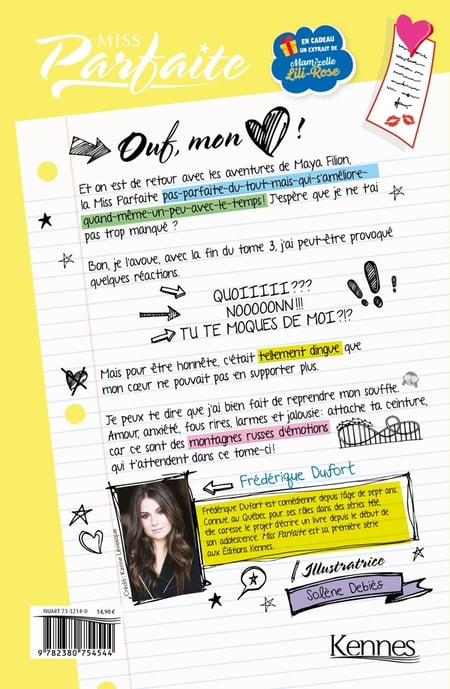 MISS
Parfaite
EN CADEAU
UN EXTRAIT DE
Mam'zelle
Lili-Rose
Ouf, mon !
Et on est de retour avec les aventures de Maya Filion,
la Miss Parfaite pas-parfaite-du-tout-mais-qui-s'améliore-
quand-même-un-peu-avec-le-temps! J'espère que je ne t'ai
pas trop manqué ?
Bon, je l'avoue, avec la fin du tome 3, j'ai peut-être provoqué
quelques réactions.
QUOIIIII???
NOOOOONN!!!
TU TE MOQUES DE MOI?!?
Mais pour être honnête, c'était tellement dingue que
mon cœur ne pouvait pas en supporter plus.
Je peux te dire que j'ai bien fait de reprendre mon souffle.
Amour, anxiété, fous rires, larmes et jalousie: attache ta ceinture,
car ce sont des montagnes russes d'émotions
qui t'attendent dans ce tome-ci!
Frédérique Dufort
Frédérique Dufort est comédienne depuis l'âge de sept ans.
Connue au Québec pour ses rôles dans des séries télé,
elle caresse le projet d'écrire un livre depuis le début de
son adolescence. Miss Parfaite est sa première série
aux Éditions Kennes.
Illustratrice
Solène Debiès
NUART 73-3214-0 14,90 €
9 782380 754544
Kennes